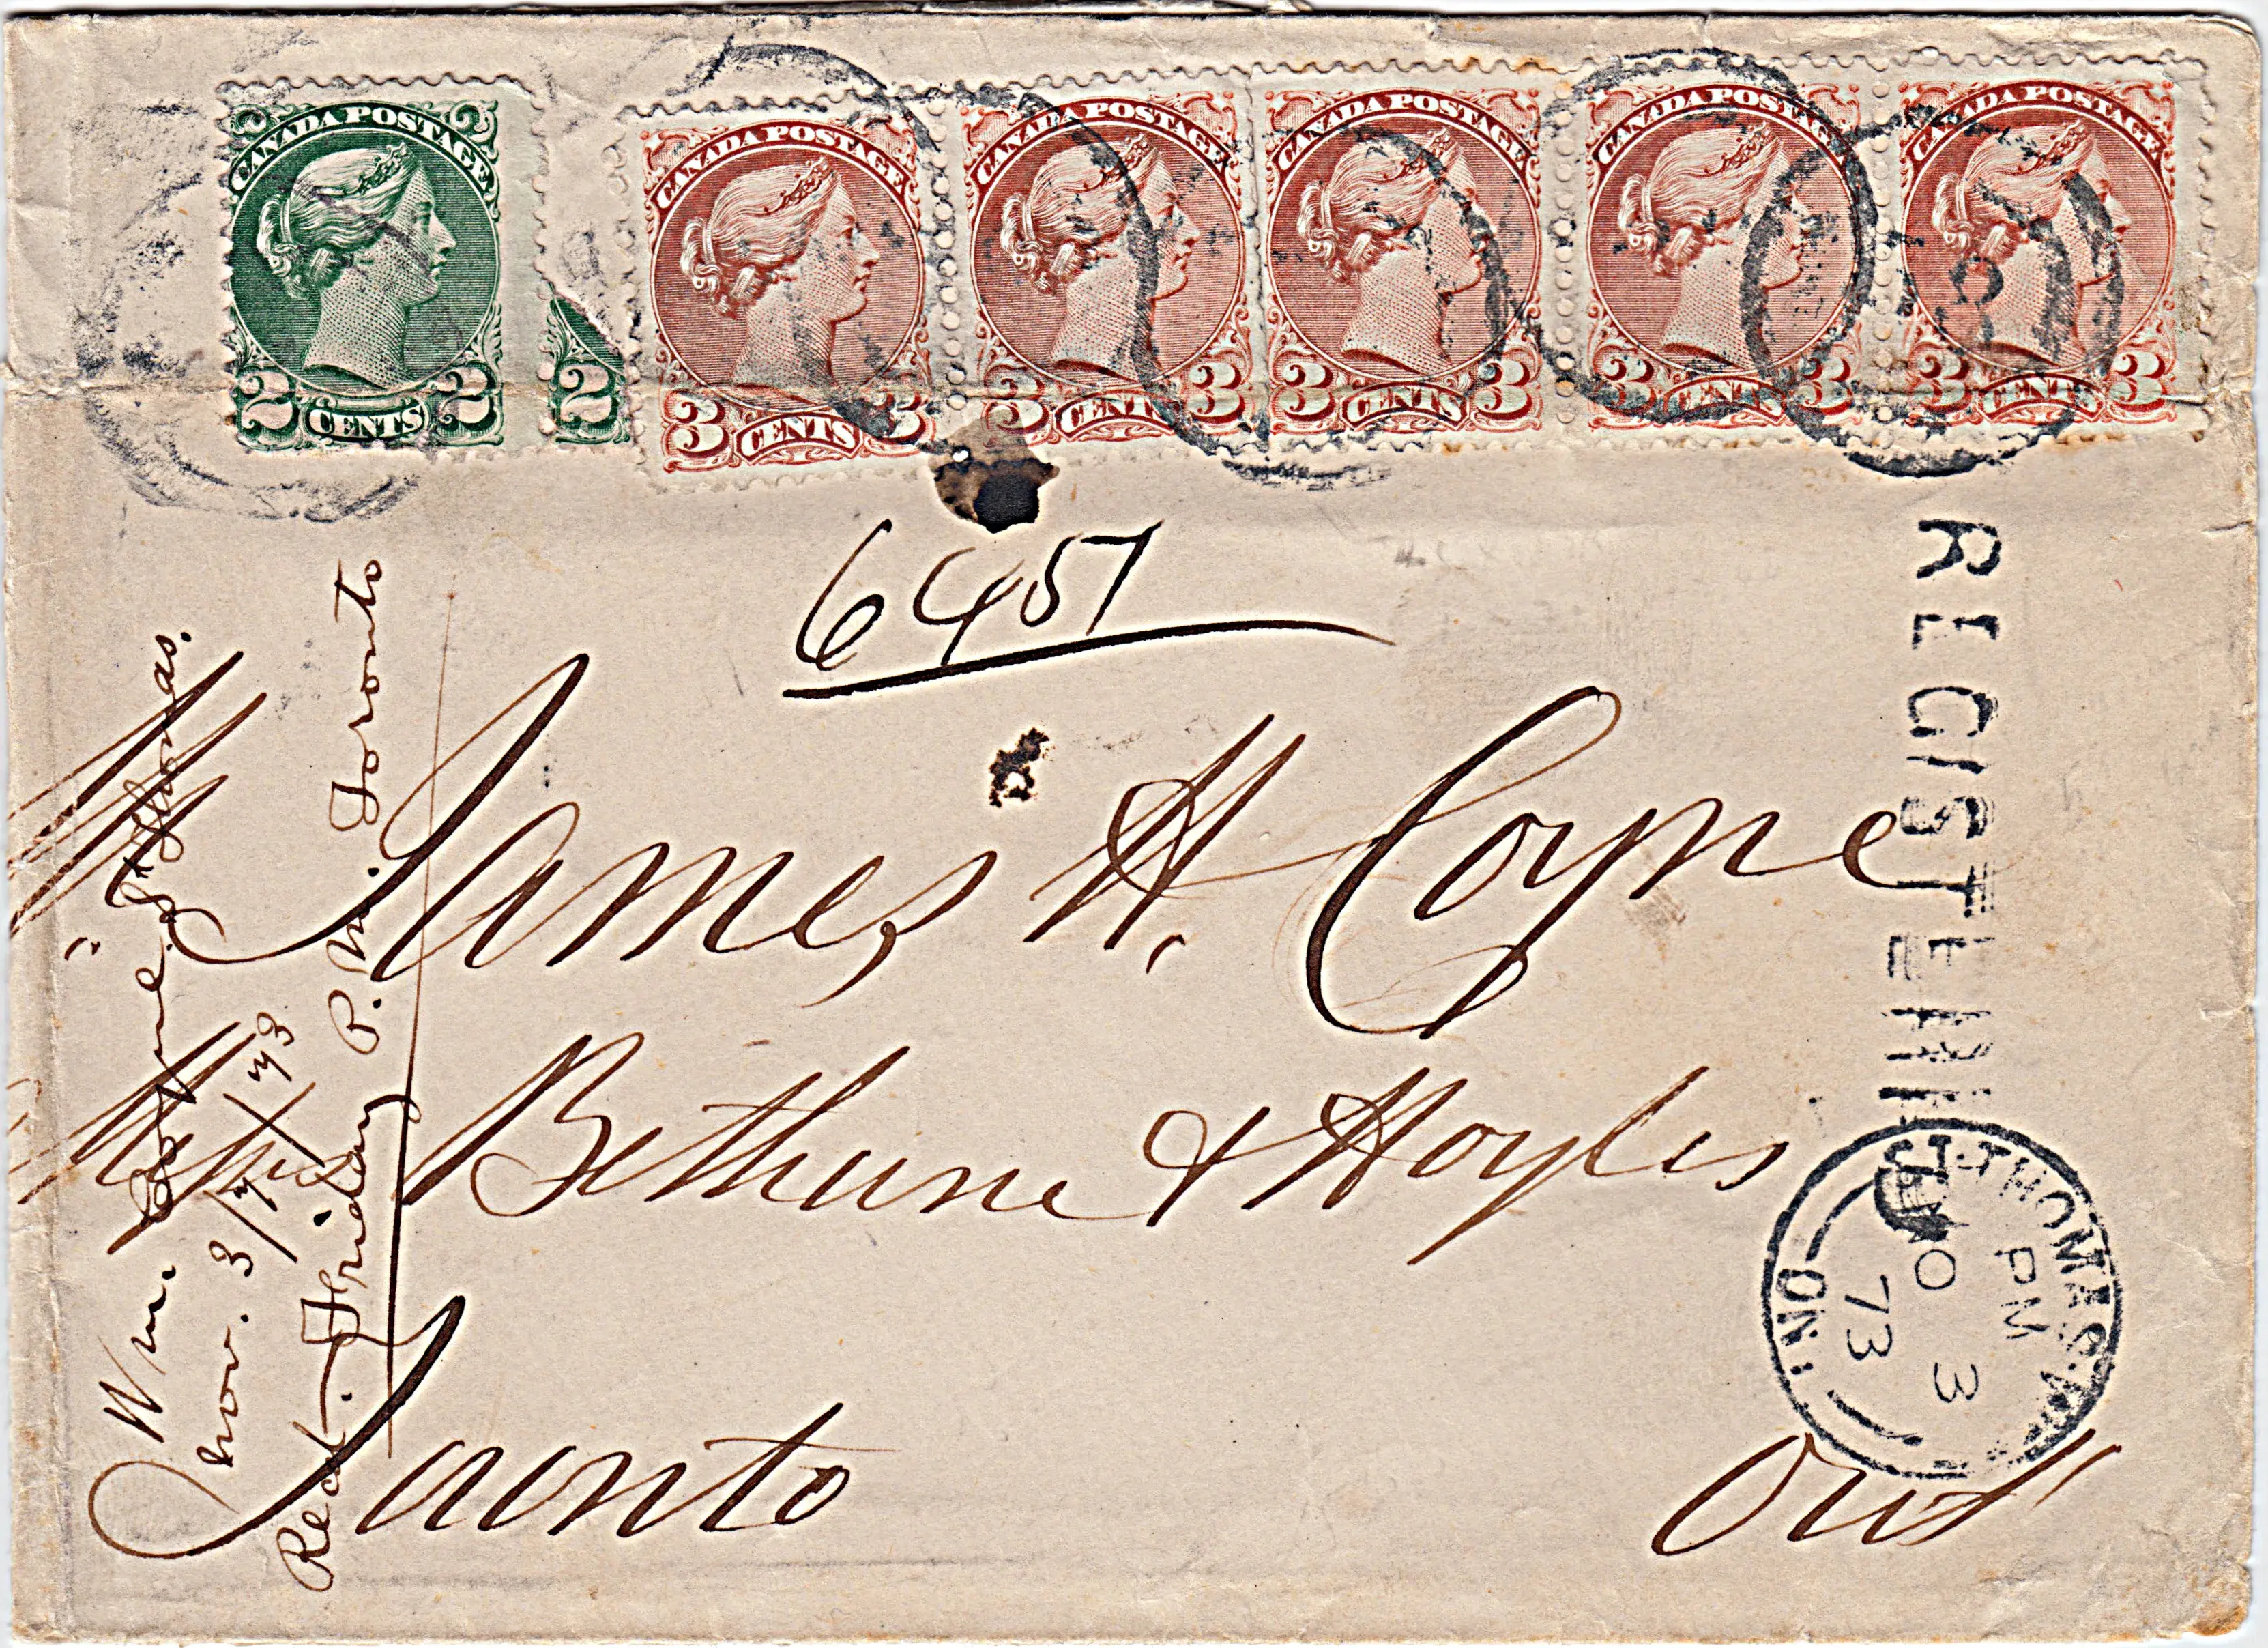 CANADA POSTAGE
2 CENTS 2
2
CANADA POSTAGE
3 CENTS 3
CANADA POSTAGE
3 CENTS 3
CANADA POSTAGE
3 CENTS 3
CANADA POSTAGE
3 CENTS 3
CANADA POSTAGE
3 CENTS 3
6457
REGISTERED
James H. Coyne
Bethune & Hoyles
Toronto
Ont
Wm. Coyne, St Thomas.
Nov. 3/73
Recd. Friday P.M. Toronto
ST. THOMAS
PM
NO 3
73
ONT